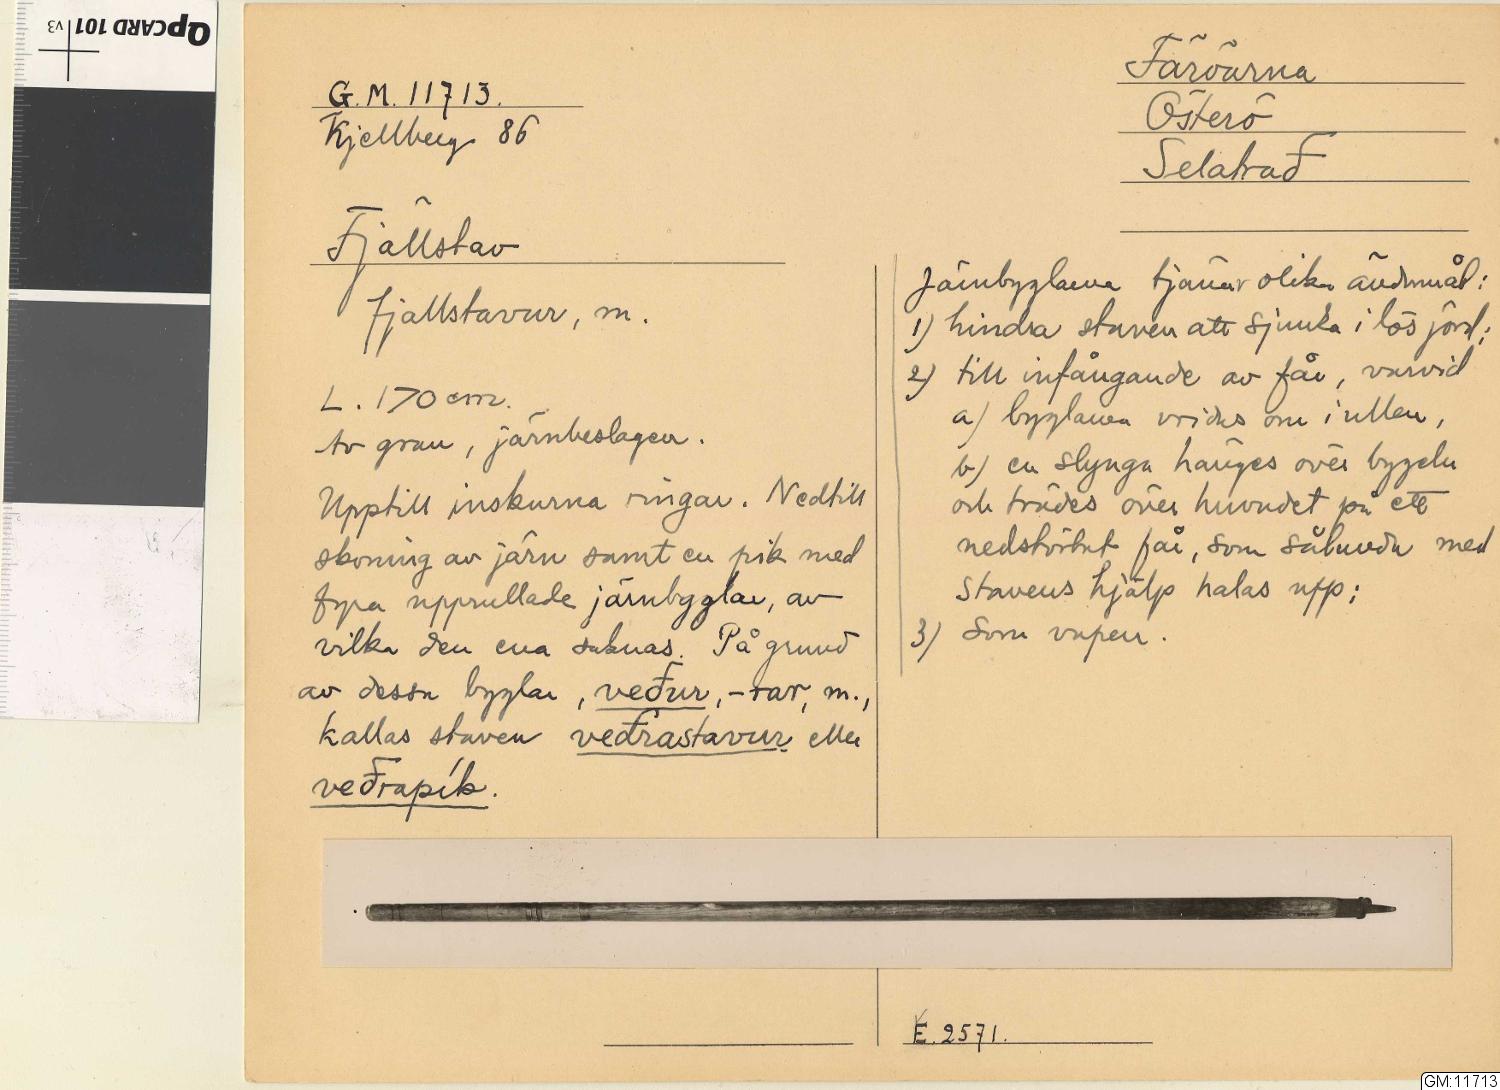 QPCARD 101 v3
G.M. 11713.
Kjellberg 86
Färöarna
Österö
Selatrað
Fjällstav
fjallstavur, m.
L. 170 cm.
Av gran, järnbeslagen.
Upptill inskurna ringar. Nedtill
skoning av järn samt en pik med
fyra upprullade järnbyglar, av
vilka den ena saknas. På grund
av dessa byglar, veður, -rar, m.,
kallas staven veðrastavur eller
veðrapík.
Järnbyglarna tjänar olika ändamål:
1) hindra staven att sjunka i lös jord;
2) till infångande av får, varvid
a) byglarna vrides om i ullen,
b) en slynga hänges över bygeln
och trädes över huvudet på ett
nedstörtat får, som sålunda med
stavens hjälp halas upp;
3) som vapen.
E. 2571.
GM:11713